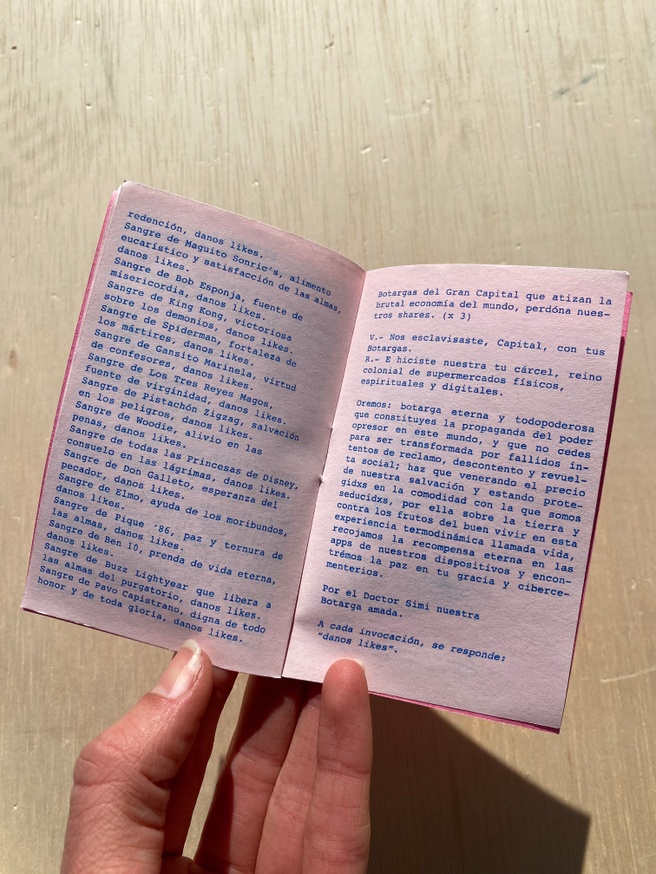 redención, danos likes.
Sangre de Maguito Sonric's, alimento
eucarístico y satisfacción de las almas,
danos likes.
Sangre de Bob Esponja, fuente de
misericordia, danos likes.
Sangre de King Kong, victoriosa
sobre los demonios, danos likes.
Sangre de Spiderman, fortaleza de
los mártires, danos likes.
Sangre de Gansito Marinela, virtud
de confesores, danos likes.
Sangre de Los Tres Reyes Magos,
fuente de virginidad, danos likes.
Sangre de Pistachón Zigzag, salvación
en los peligros, danos likes.
Sangre de Woodie, alivio en las
penas, danos likes.
Sangre de todas las Princesas de Disney,
consuelo en las lágrimas, danos likes.
Sangre de Don Galleto, esperanza del
pecador, danos likes.
Sangre de Elmo, ayuda de los moribundos,
danos likes.
Sangre de Pique '86, paz y ternura de
las almas, danos likes.
Sangre de Ben 10, prenda de vida eterna,
danos likes.
Sangre de Buzz Lightyear que libera a
las almas del purgatorio, danos likes.
Sangre de Pavo Capistrano, digna de todo
honor y de toda gloria, danos likes.
Botargas del Gran Capital que atizan la
brutal economía del mundo, perdóna nues-
tros shares. (x 3)
V.- Nos esclavisaste, Capital, con tus
Botargas.
R.- E hiciste nuestra tu cárcel, reino
colonial de supermercados físicos,
espirituales y digitales.
Oremos: botarga eterna y todopoderosa
que constituyes la propaganda del poder
opresor en este mundo, y que no cedes
para ser transformada por fallidos in-
tentos de reclamo, descontento y revuel-
ta social; haz que venerando el precio
de nuestra salvación y estando prote-
gidxs en la comodidad con la que somos
seducidxs, por ella sobre la tierra y
contra los frutos del buen vivir en esta
experiencia termodinámica llamada vida,
recojamos la recompensa eterna en las
apps de nuestros dispositivos y encon-
trémos la paz en tu gracia y ciberce-
menterios.
Por el Doctor Simi nuestra
Botarga amada.
A cada invocación, se responde:
"danos likes".